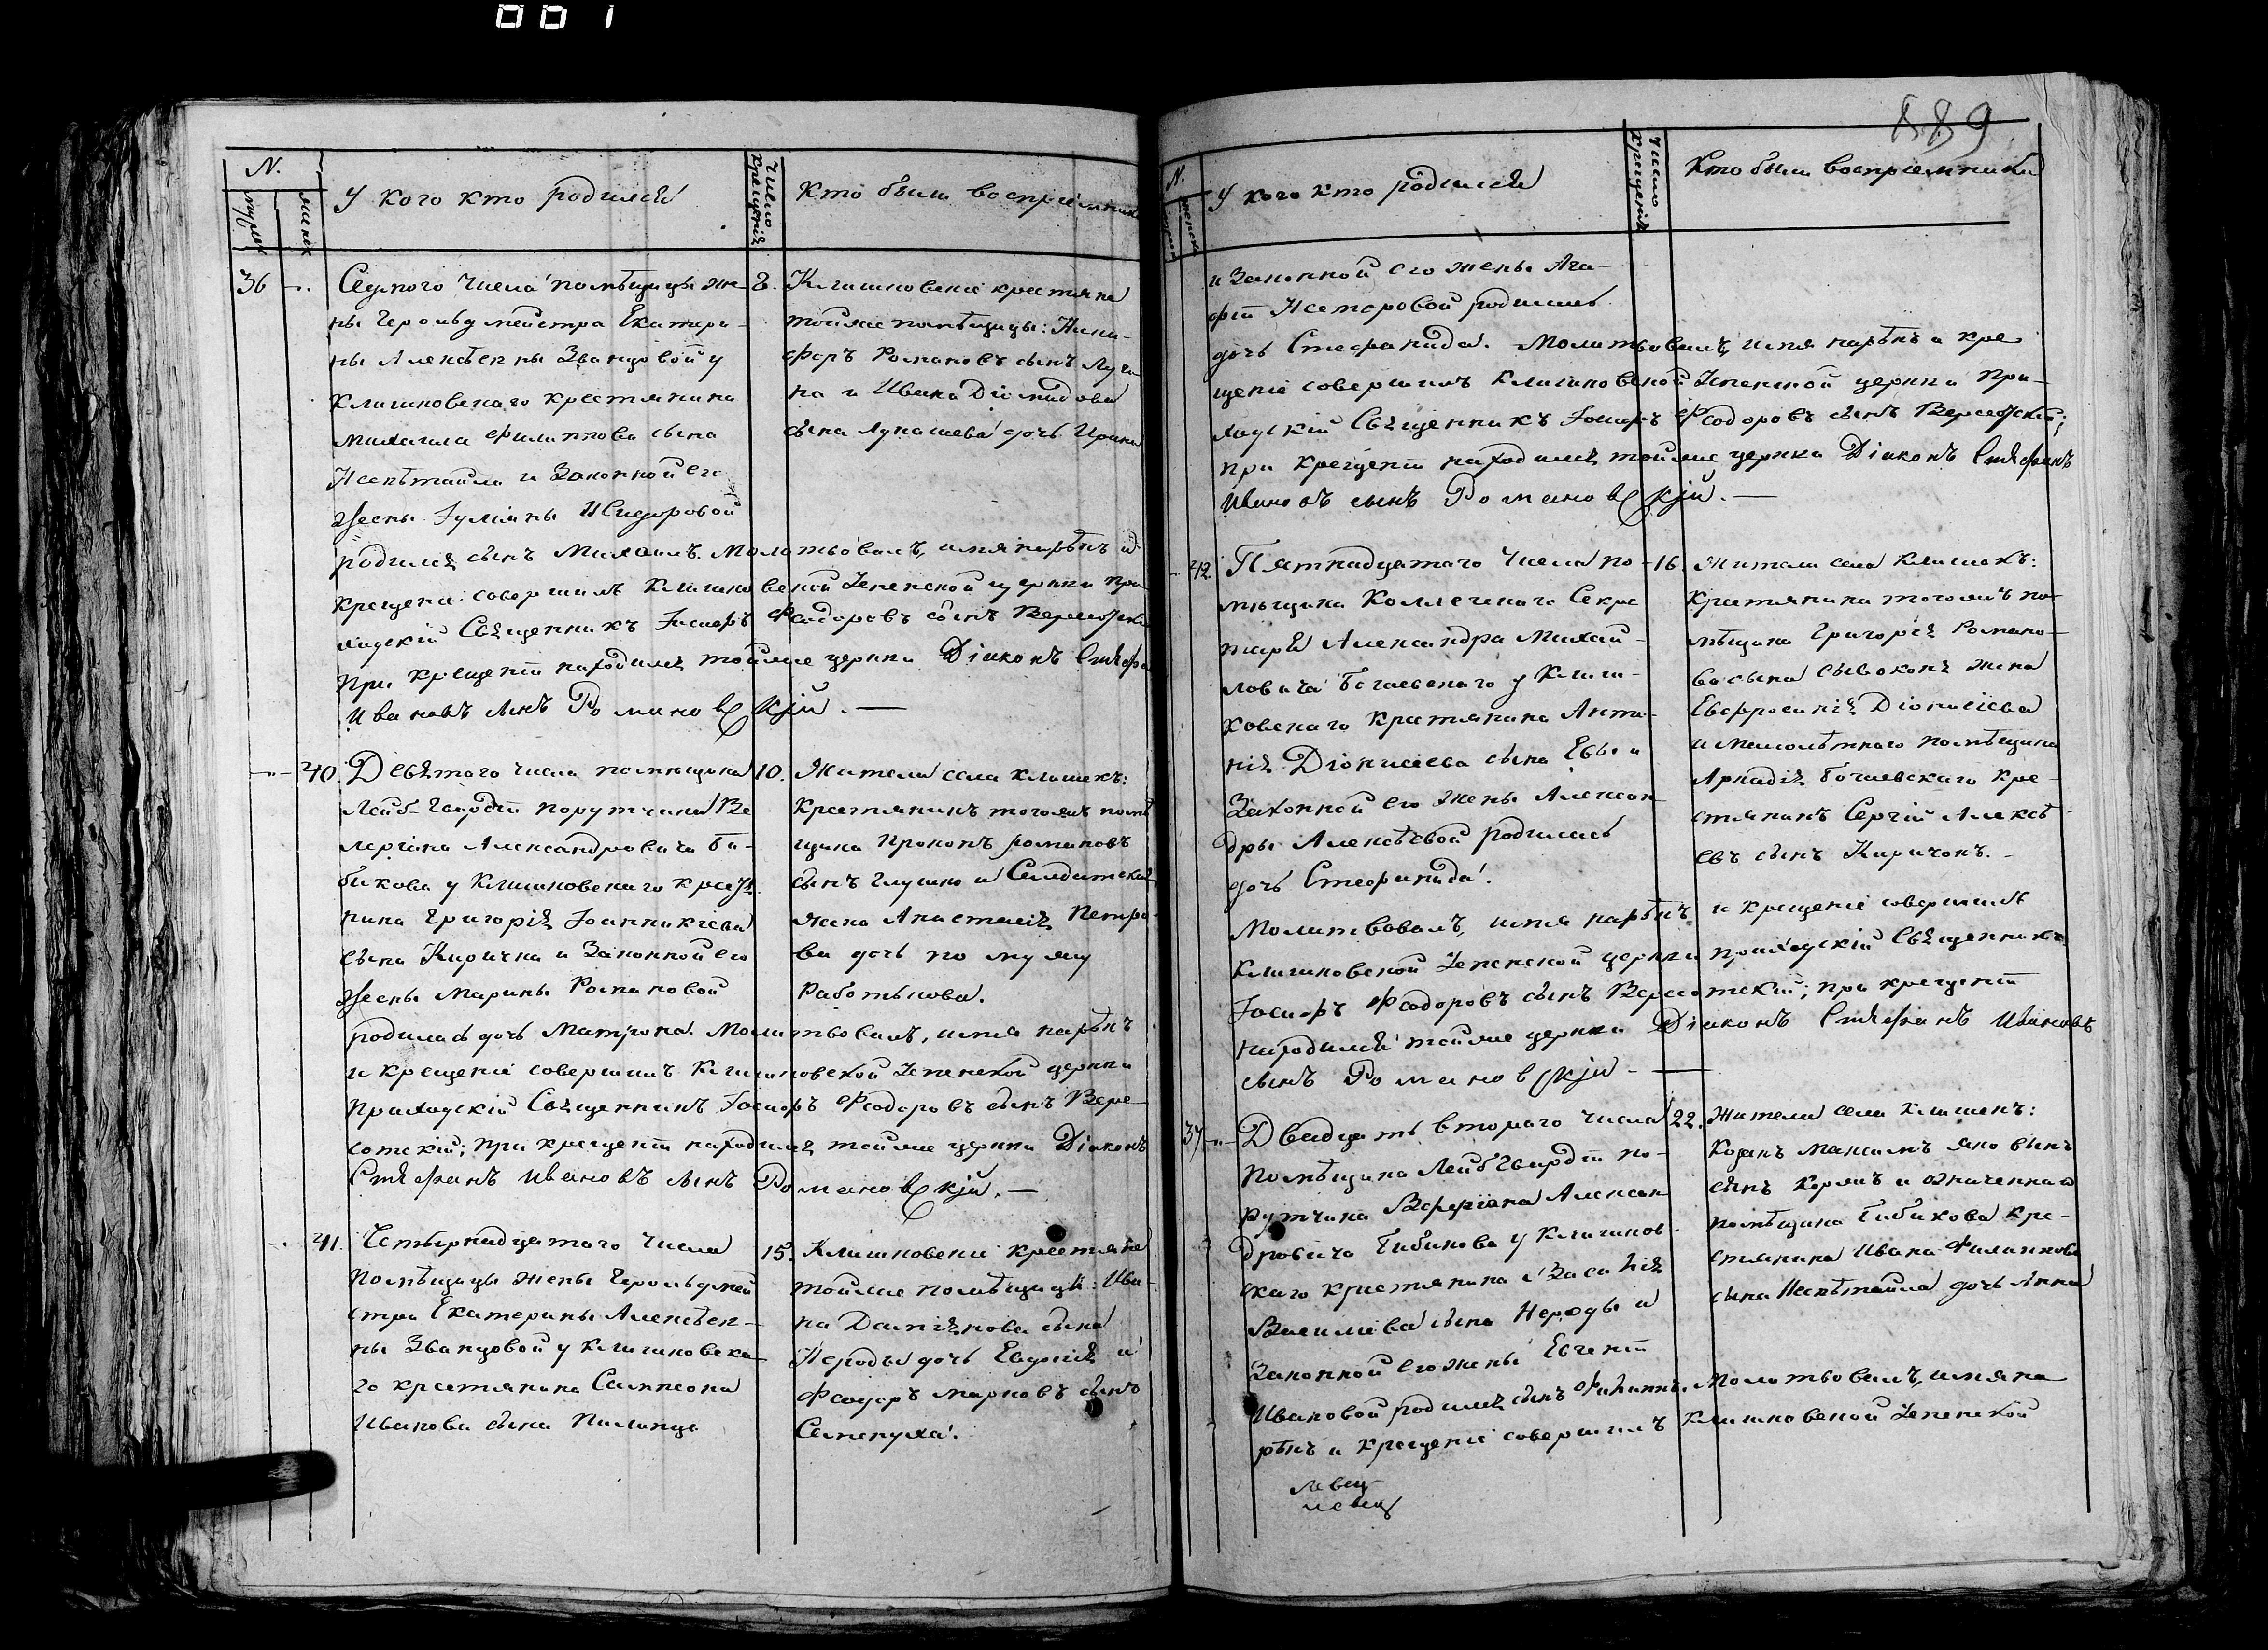 001
889
N.
мужеск
женск
У кого кто родился
Число крещенія
Кто были воспріемники
36
Седмого числа помѣщицы же-
ны Герольдмейстра Екатери-
ны Алексѣевны Званцовой у
Клишковскаго крестянина
Михаила Филиппова сына
Неспѣтайла и Законной его
жены Іуліяны Исидоровой
родился сынъ Михаилъ. Молитвовалъ, имя нарѣкъ и
крещеніе совершилъ Клишковской Успенской церкви при
ходскій Священникъ Іосифъ Феодоровъ сынъ Вересотскій
при крещеніи находился тойже церкви Діаконъ Стефанъ
Ивановъ сынъ Романовскій. —
8.
Клишковскіе крестяне
тойже помѣщицы: Ники-
форъ Романовъ сынъ
на и Ивана Діомидова
сына Лукашева дочь Ирина
40.
Девятого числа помѣщика
Лейб-Гвардіи порутчика Ва
леріана Александровича Би-
бикова у Клишковскаго крестя
нина Григорія Іоанникіева
сына Киричка и Законной его
жены Марины Романовой
родилась дочь Матрона. Молитвовалъ, имя нарѣкъ
и крещеніе совершилъ Клишковской Успенской церкви
Приходскій Священникъ Іосифъ Феодоровъ сынъ Вере-
сотскій; при крещеніи находился тойже церкви Діаконъ
Стефанъ Ивановъ сынъ Романовскій. —
10.
Жители села Клишекъ:
Крестянинъ тогожъ помѣ
щика Прокопъ Романовъ
сынъ Глушко и Салдатская
жена Анастасія Петро-
ва дочь по мужу
Работькова.
41.
Четырнадцатого числа
Помѣщицы жены Герольдмей
стра Екатерины Алексѣев-
ны Званцовой у Клишковска-
го крестянина Сампсона
Иванова сына Пилипца
15.
Клишковскіе крестяне
тойже помѣщицы: Ива-
на Даміянова сына
Нероды дочь Евдокія и
Феодоръ Марковъ сынъ
Семенуха.
N.
женск
У кого кто родился
Число крещенія
Кто были воспріемники
и Законной его жены Ага-
фіи Несторовой родилась
дочь Стефанида. Молитвовалъ, имя нарѣкъ и кре
щеніе совершилъ Клишковской Успенской церкви При-
ходскій Священникъ Іосифъ Феодоровъ сынъ Вересотскій;
при крещеніи находился тойже церкви Діаконъ Стефанъ
Ивановъ сынъ Романовскій. —
42.
Пятнадцатого числа по-
мѣщика Коллегскаго Секре
таря Александра Михай-
ловича Богаевскаго у Клиш-
ковскаго крестянина Анто-
нія Діонисіева сына и
Законной его жены Алексан-
дры Алексѣевой родилась
дочь Стефанида.
Молитвовалъ, имя нарѣкъ и крещеніе совершилъ
Клишковской Успенской церкви приходскій Священникъ
Іосифъ Феодоровъ сынъ Вересотскій; при крещеніи
находился тойже церкви Діаконъ Стефанъ Ивановъ
сынъ Романовскій —
16.
Жители села Клишокъ:
Крестянина тогожъ по-
мѣщика Григорія Романо-
ва сына жена
Евфросинія Діонисіева
и малолѣтнаго помѣщика
Аркадія Богаевскаго кре-
стянинъ Сергій Алексѣ-
евъ сынъ Киричокъ. —
37
Двадцать втораго числа
Помѣщика Лейб Гвардіи по-
рутчика Валеріана Алексан
дровича Бибикова у Клишков-
скаго крестянина Василія
Василіева сына Нероды и
Законной его жены Евгеніи
Ивановой родился сынъ Филиппъ. Молитвовалъ, имя на
рѣкъ и крещеніе совершилъ Клишковской Успенской
22.
Жители села Клишекъ:
Козакъ Максимъ Яковлевъ
сынъ и означеннаго
помѣщика Бибикова кре-
стянина Ивана Филиппова
сына Неспѣтайла дочь Анна